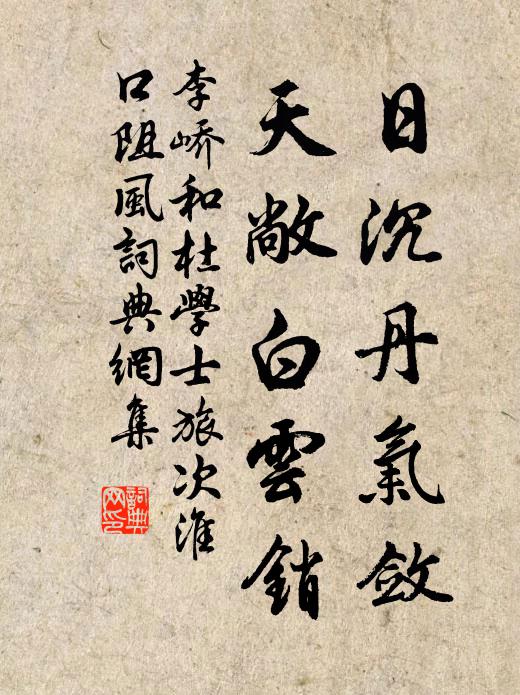 日沉丹氣斂
天敞白雲銷
李嶠和杜學士旅次淮
口阻風詞典網集
詞典网印